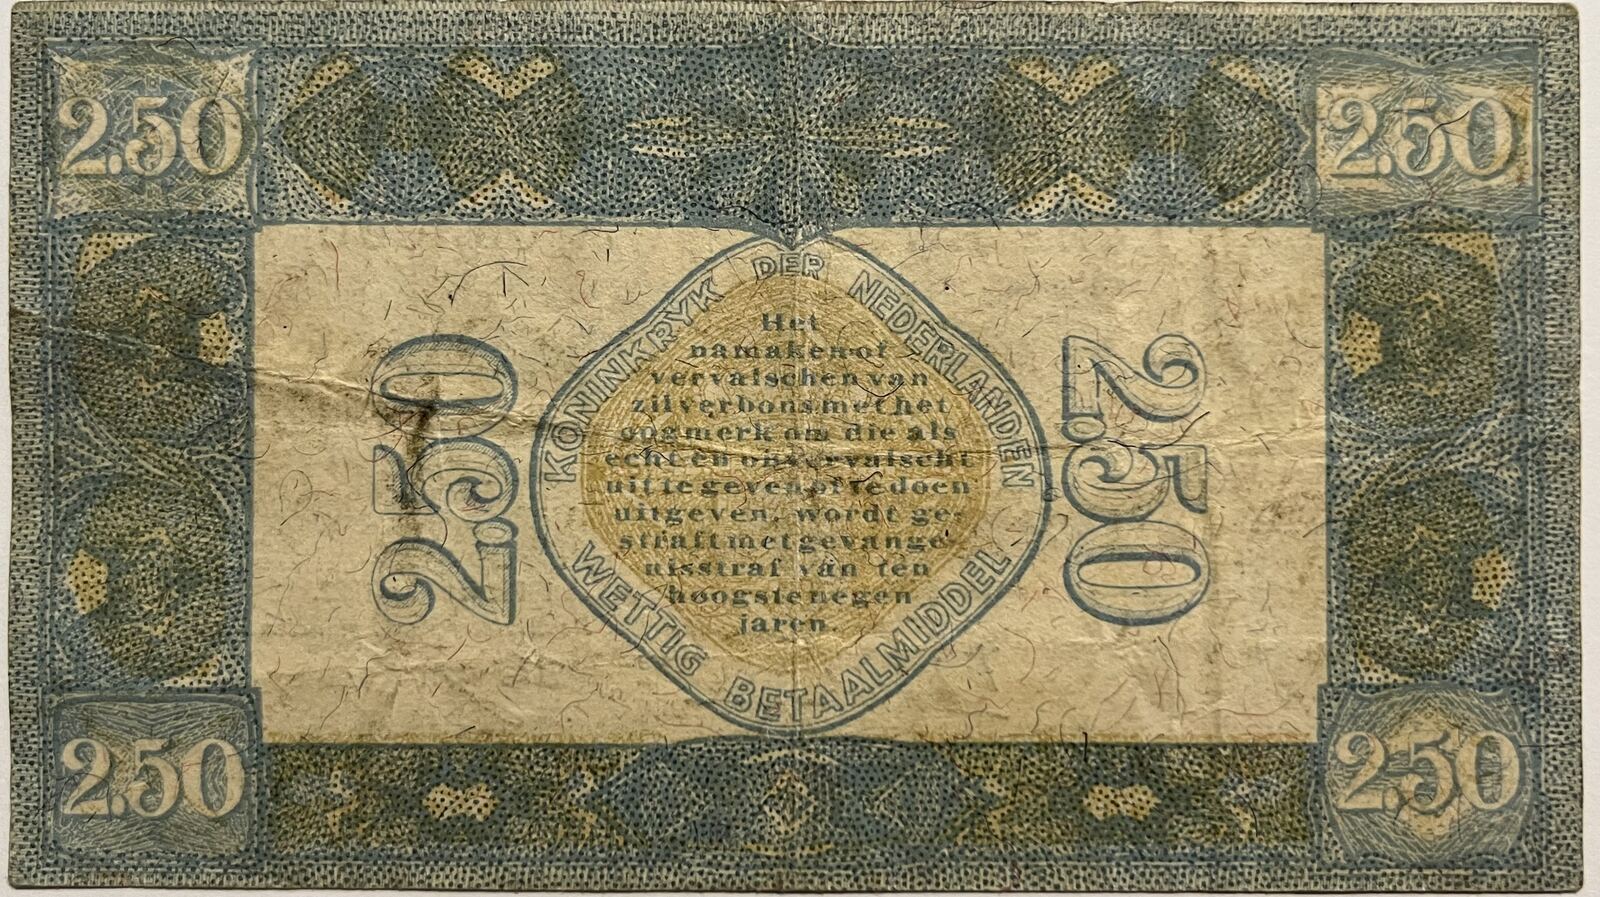 2.50
2.50
KONINKRYK DER NEDERLANDEN
2.50
Het
namaken of
vervalschen van
zilverbons met het
oogmerk om die als
echt en onvervalscht
uit te geven of te doen
uitgeven, wordt ge-
straft met gevange
nisstraf van ten
hoogste negen
jaren.
2.50
WETTIG BETAALMIDDEL
2.50
2.50